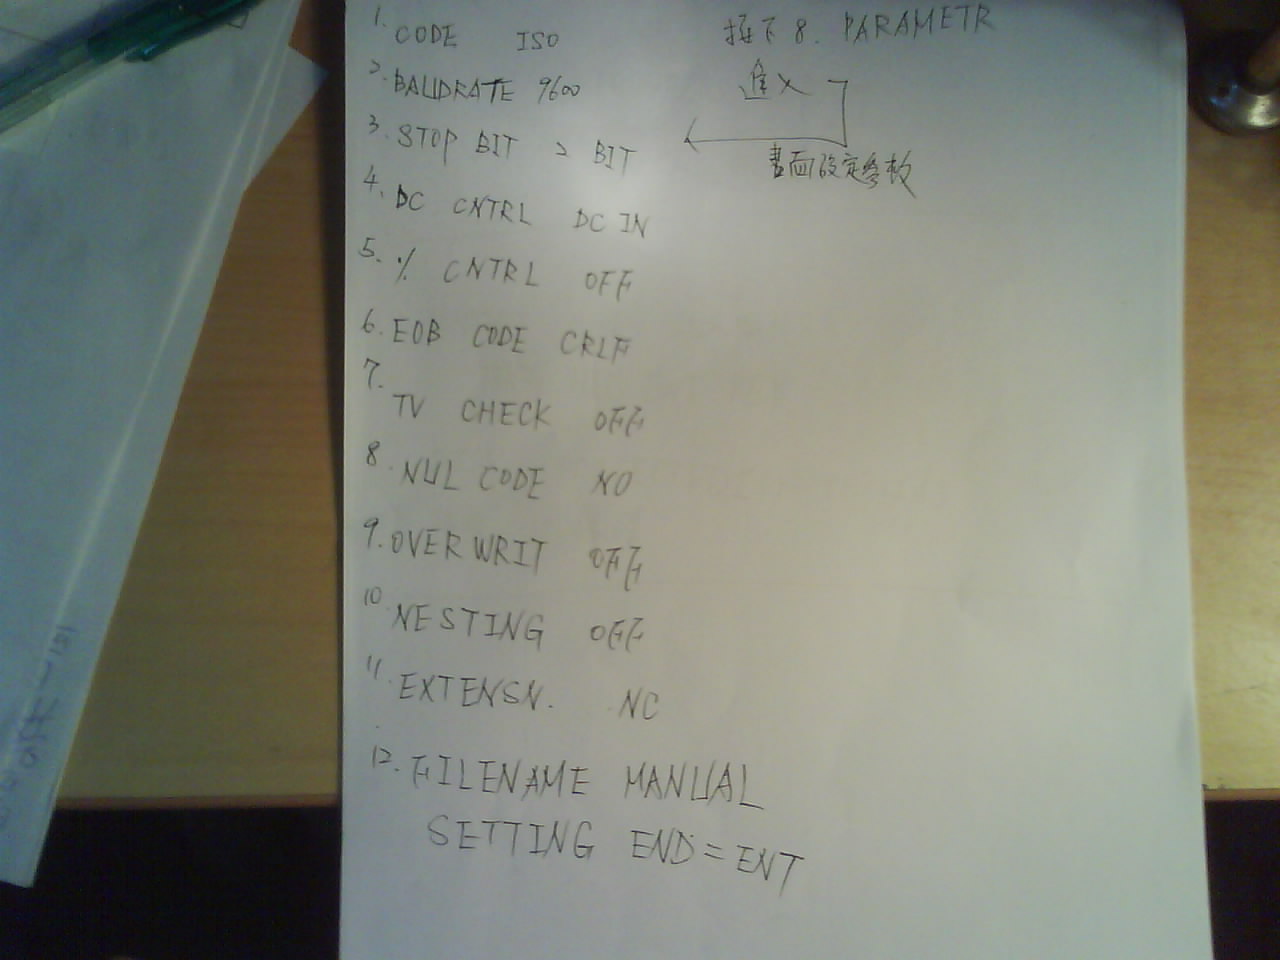 1. CODE ISO
2. BAUDRATE 9600
3. STOP BIT 2 BIT
4. DC CNTRL DC IN
5. % CNTRL OFF
6. EOB CODE CRLF
7. TV CHECK OFF
8. NUL CODE NO
9. OVERWRIT OFF
10. NESTING OFF
11. EXTENSN. NC
12. FILENAME MANUAL
SETTING END=ENT
按下 8. PARAMETR
進入
畫面設定參數